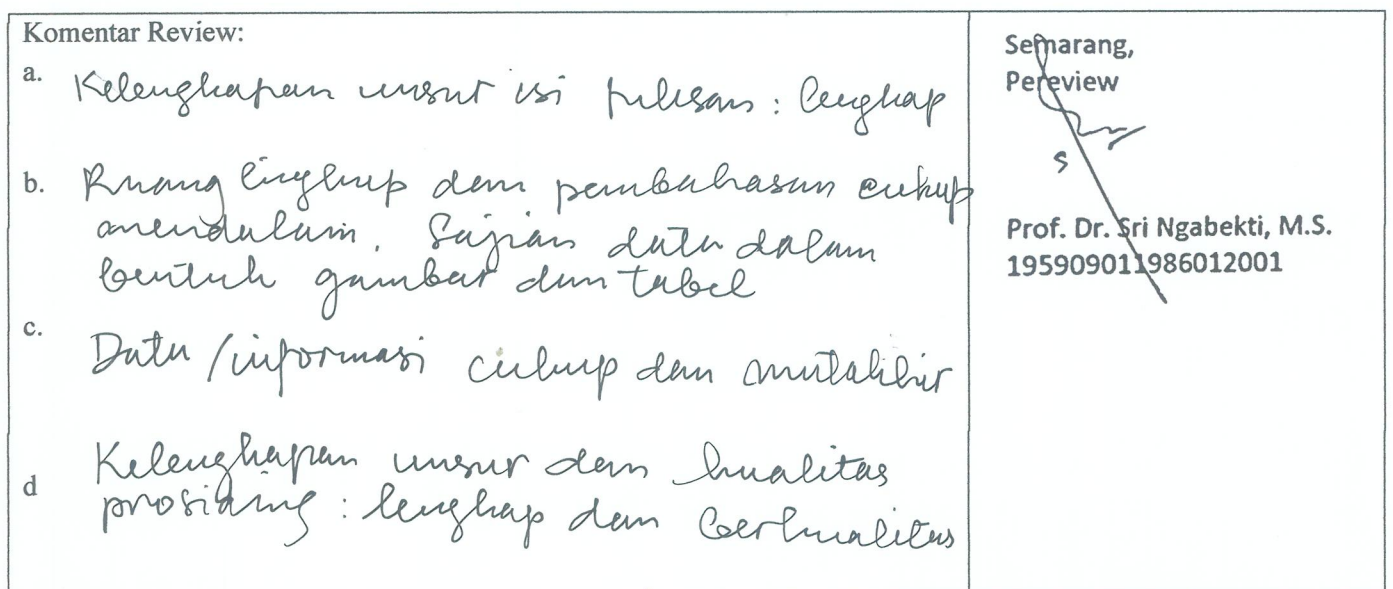 Komentar Review:
a. Kelengkapan unsur isi tulisan : lengkap
b. Ruang lingkup dan pembahasan cukup
mendalam. Sajian data dalam
bentuk gambar dan tabel
c. Data / informasi cukup dan mutakhir
d Kelengkapan unsur dan kualitas
prosiding : lengkap dan berkualitas
Semarang,
Pereview
Prof. Dr. Sri Ngabekti, M.S.
195909011986012001